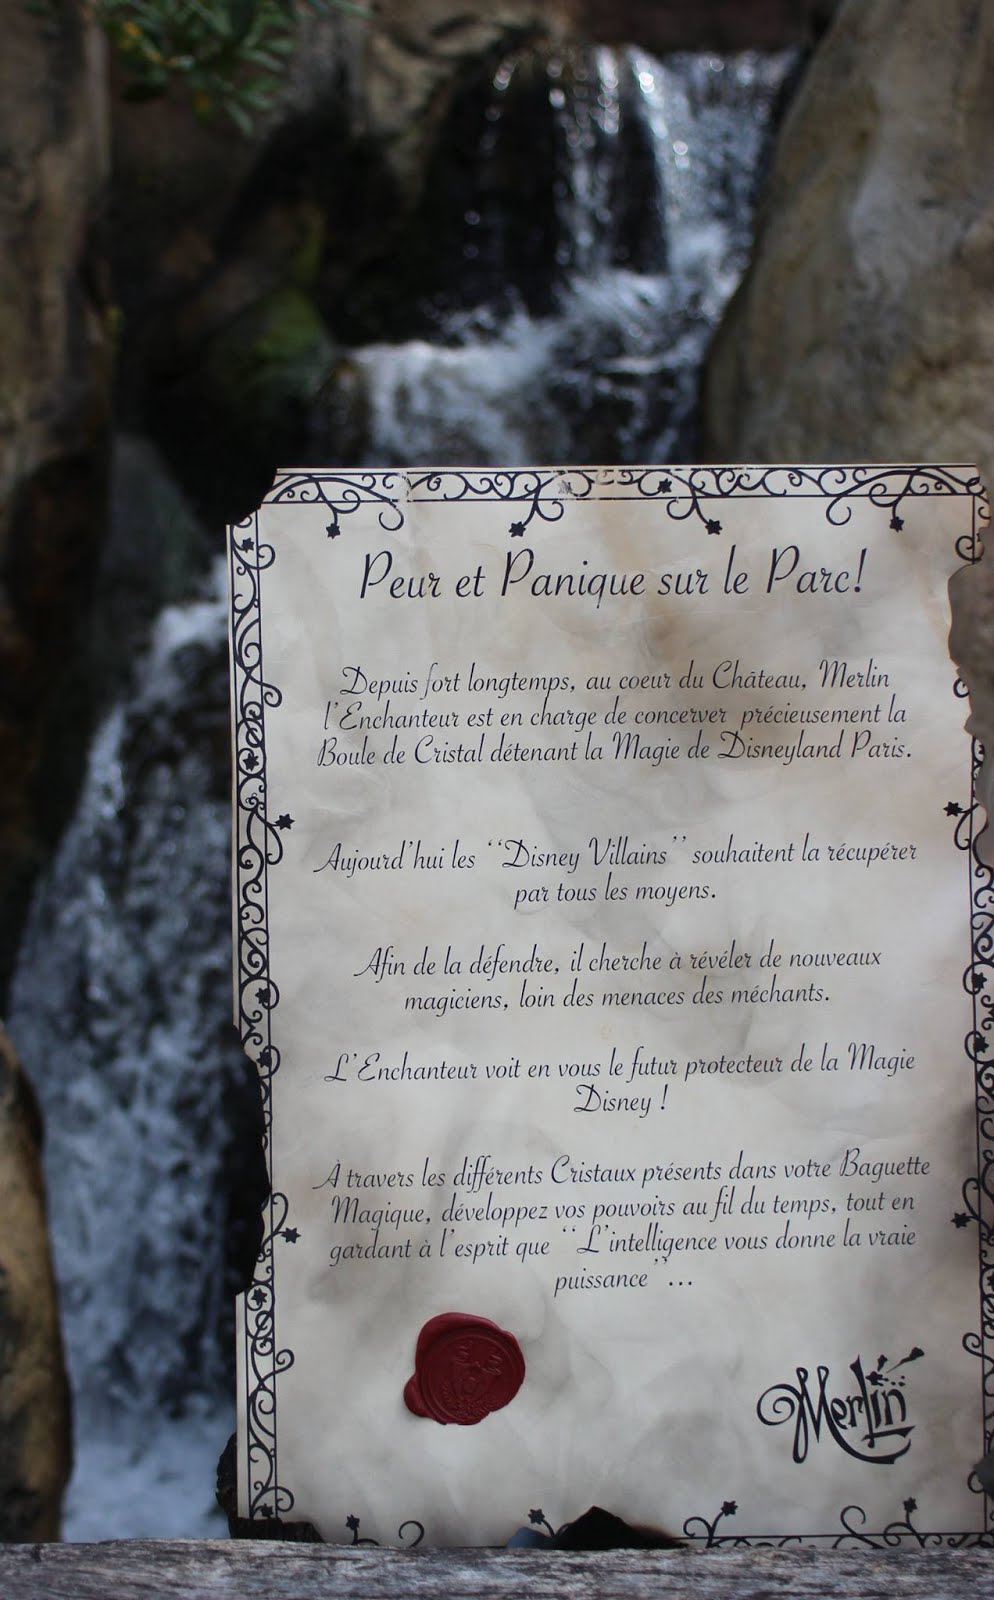 Peur et Panique sur le Parc!
Depuis fort longtemps, au coeur du Château, Merlin
l'Enchanteur est en charge de concerver précieusement la
Boule de Cristal détenant la Magie de Disneyland Paris.
Aujourd'hui les ‘‘Disney Villains’’ souhaitent la récupérer
par tous les moyens.
Afin de la défendre, il cherche à révéler de nouveaux
magiciens, loin des menaces des méchants.
L'Enchanteur voit en vous le futur protecteur de la Magie
Disney !
À travers les différents Cristaux présents dans votre Baguette
Magique, développez vos pouvoirs au fil du temps, tout en
gardant à l'esprit que ‘‘L'intelligence vous donne la vraie
puissance’’...
Merlin